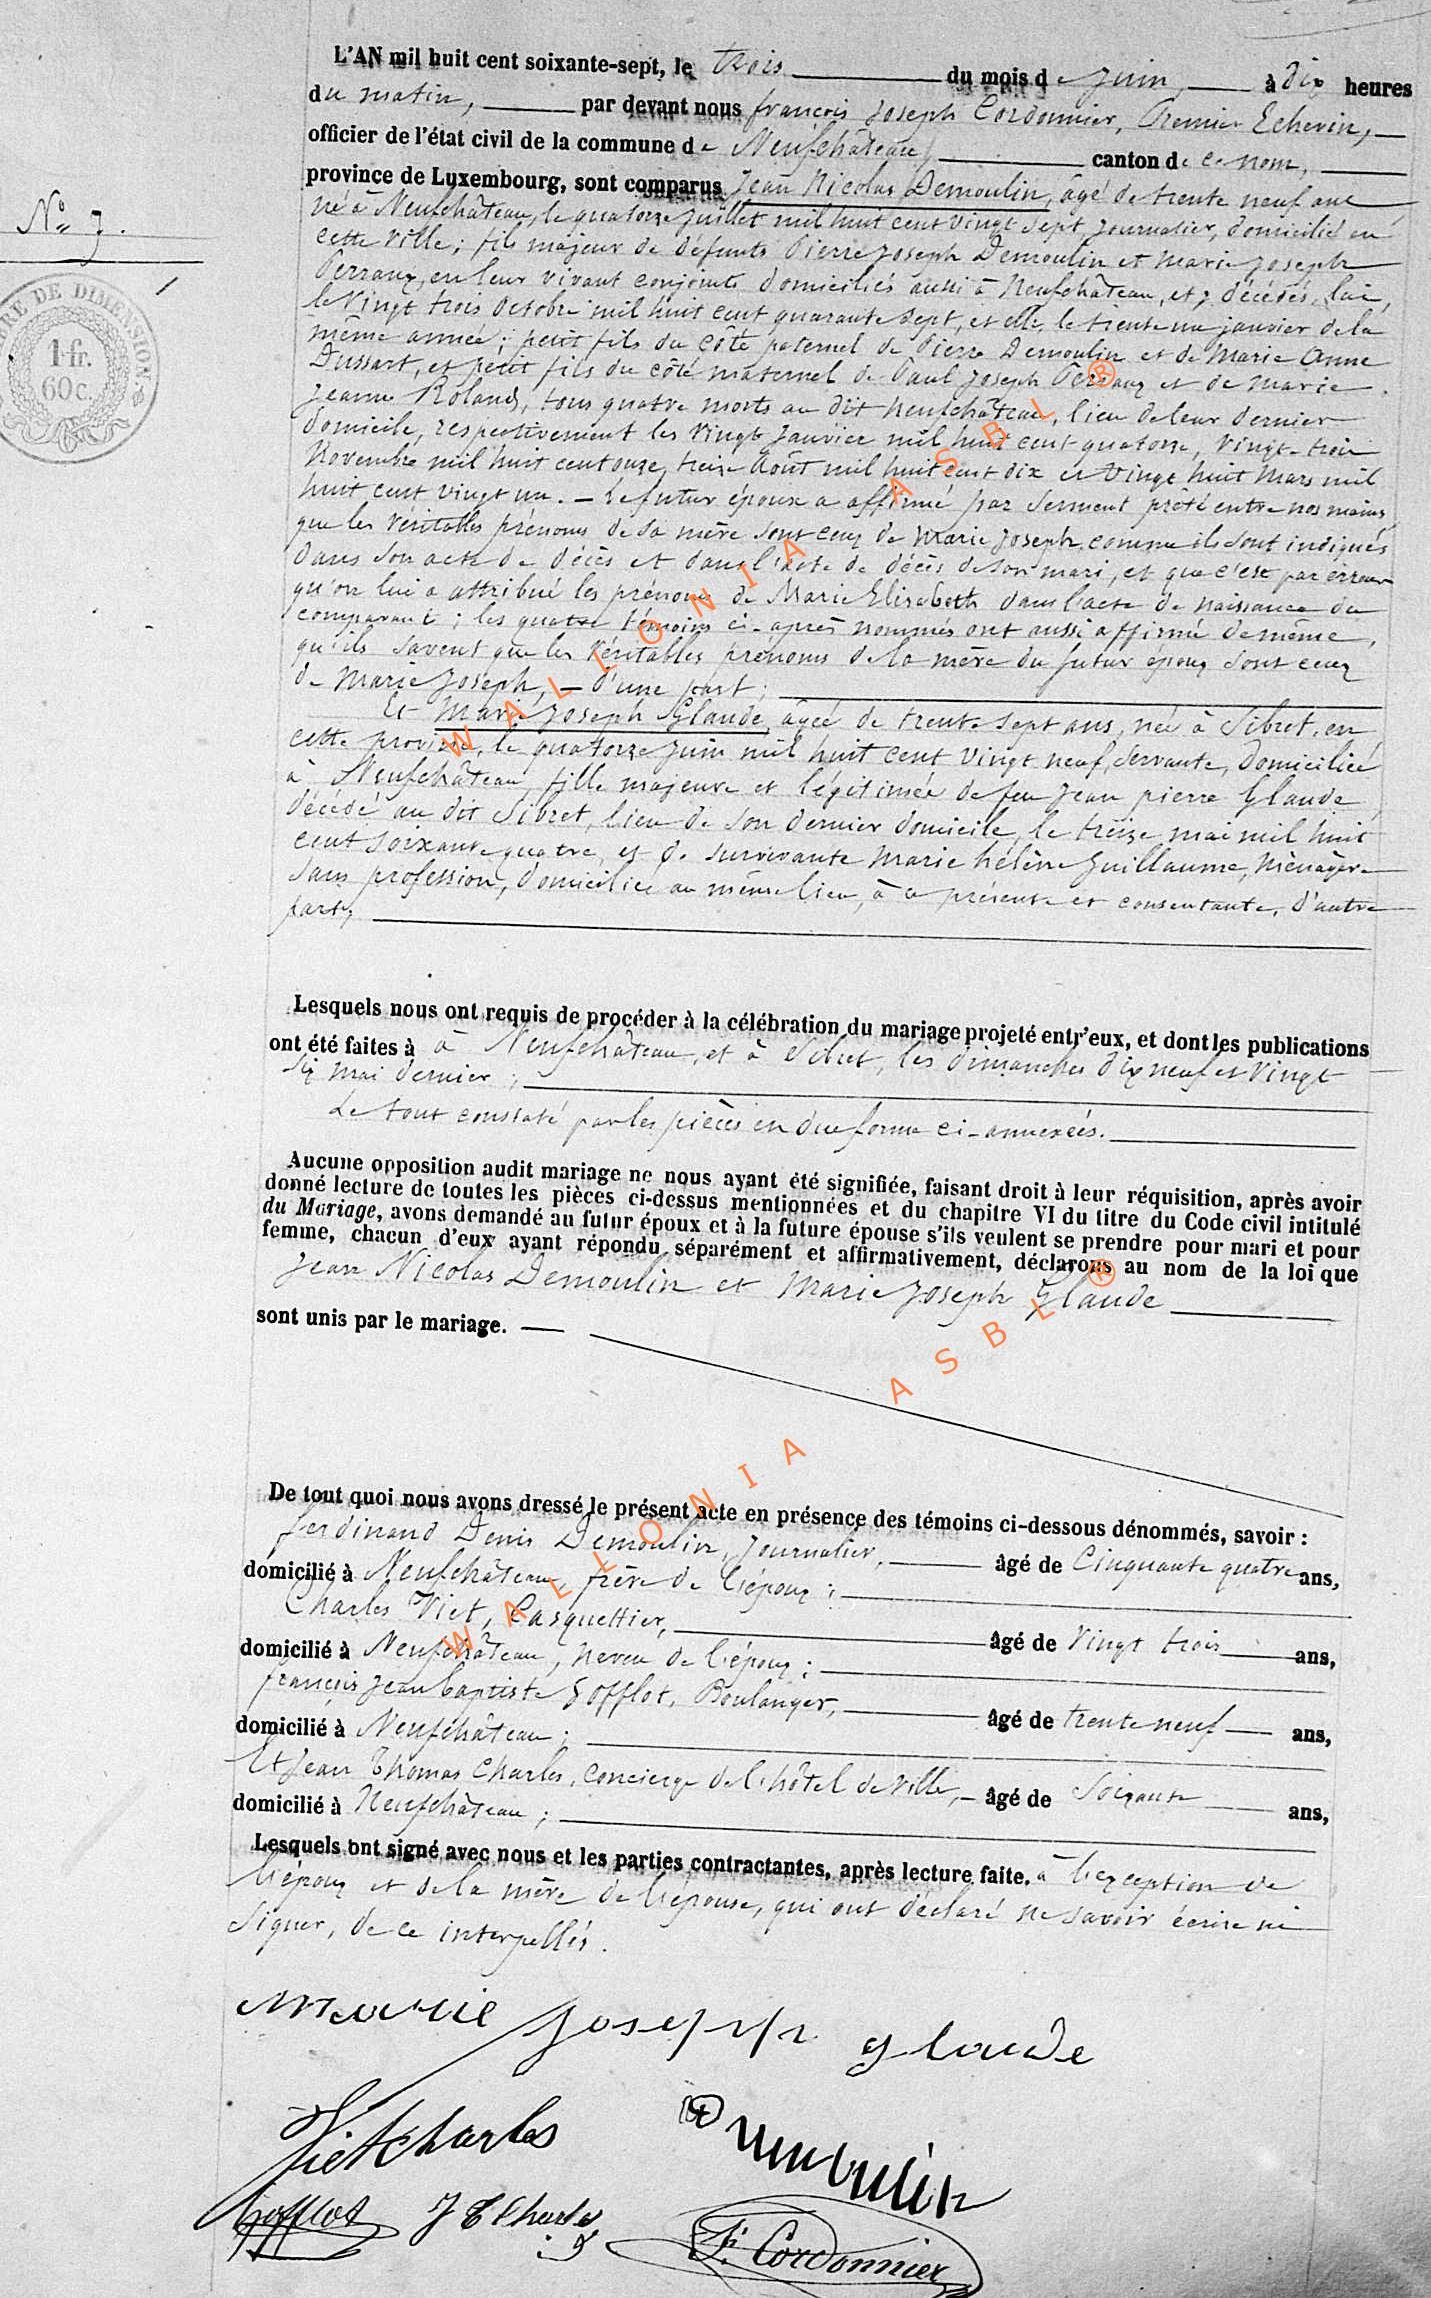 L'AN mil huit cent soixante-sept, le trois du mois de Juin, à dix heures
du matin, par devant nous françois Joseph Cordonnier, Premier Echevin,
officier de l'état civil de la commune de Neufchâteau, canton de ce nom,
province de Luxembourg, sont comparus Jean Nicolas Demoulin, âgé de trente neuf ans
né à Neufchâteau, le quatorze Juillet mil huit cent vingt sept, Journalier, domicilié en
cette ville; fils majeur de défunts Pierre Joseph Demoulin et Marie Joseph
Perraux, en leur vivant conjoints domiciliés aussi à Neufchâteau, et y décédés, lui,
le Vingt trois Octobre mil huit cent quarante sept, et elle, le trente un janvier de la
même année; petit fils du côté paternel de Pierre Demoulin et de Marie Anne
Dussart, et petit fils du côté maternel de Paul Joseph Perraux et de Marie
Jeanne Roland, tous quatre morts au dit Neufchâteau, lieu de leur dernier
domicile, respectivement les Vingt Janvier mil huit cent quatorze, Vingt-trois
Novembre mil huit cent onze, treize Août mil huit cent dix et Vingt huit Mars mil
huit cent vingt un. – Le futur époux a affirmé par serment prêté entre nos mains
que les véritables prénoms de sa mère sont ceux de Marie Joseph, comme ils sont indiqués
dans son acte de décès et dans l'acte de décès de son mari, et que c'est par erreur
qu'on lui a attribué les prénoms de Marie Elisabeth dans l'acte de naissance du
comparant; les quatre témoins ci-après nommés ont aussi affirmé de même,
qu'ils savent que les véritables prénoms de la mère du futur époux sont ceux
de Marie Joseph, – d'une part;
Et Marie Joseph Glaude, âgée de trente sept ans, née à Sibret, en
cette province, le quatorze Juin mil huit cent vingt neuf, Servante, domiciliée
à Neufchâteau, fille majeure et légitimée de feu Jean pierre Glaude,
décédé au dit Sibret, lieu de son dernier domicile, le treize mai mil huit
cent soixante quatre, et de survivante Marie hélène Guillaume, Ménagère
sans profession, domiciliée au même lieu, à ce présente et consentante, d'autre
part,
N° 7.
RE DE DIMENSION.
1 fr.
60 c.
Lesquels nous ont requis de procéder à la célébration du mariage projeté entr'eux, et dont les publications
ont été faites à à Neufchâteau, et à Sibret, les dimanches dix neuf et Vingt
Six mai dernier;
Le tout constaté par les pièces en due forme ci-annexées.
Aucune opposition audit mariage ne nous ayant été signifiée, faisant droit à leur réquisition, après avoir
donné lecture de toutes les pièces ci-dessus mentionnées et du chapitre VI du titre du Code civil intitulé
du Mariage, avons demandé au futur époux et à la future épouse s'ils veulent se prendre pour mari et pour
femme, chacun d'eux ayant répondu séparément et affirmativement, déclarons au nom de la loi que
Jean Nicolas Demoulin et Marie Joseph Glaude
sont unis par le mariage.
De tout quoi nous avons dressé le présent acte en présence des témoins ci-dessous dénommés, savoir :
ferdinand Denis Demoulin, Journalier, âgé de Cinquante quatre ans,
domicilié à Neufchâteau, frère de l'époux;
Charles Viet, Casquettier, âgé de Vingt trois ans,
domicilié à Neufchâteau, neveu de l'époux;
françois Jean baptiste Gofflot, Boulanger, âgé de trente neuf ans,
domicilié à Neufchâteau;
Et Jean Thomas Charles, concierge de l'hôtel de Ville, âgé de Soixante ans,
domicilié à Neufchâteau;
Lesquels ont signé avec nous et les parties contractantes, après lecture faite. à l'exception de
l'époux et de la mère de l'épouse, qui ont déclaré ne savoir écrire ni
signer, de ce interpellés.
marie joseph glaude
Viet Charles
Demoulin
Gofflot J T Charles
F. J. Cordonnier
WALLONIA ASBL ®
WALLONIA ASBL ®